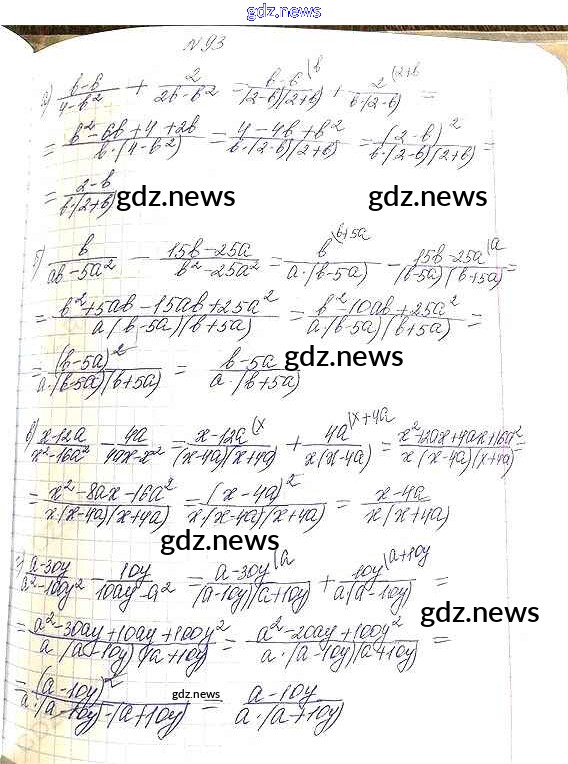 gdz.news
N 93
a) (b-6)/(4-b²) + 2/(2b-b²) = (b-6 (b)/((2-b)(2+b)) + (2 (2+b)/(b·(2-b)) =
= (b²-6b+4+2b)/(b·(4-b²)) = (4-4b+b²)/(b·(2-b)(2+b)) = (2-b)²/(b·(2-b)(2+b)) =
= (2-b)/(b·(2+b)) gdz.news gdz.news
б) b/(ab-5a²) - (15b-25a)/(b²-25a²) = (b (b+5a)/(a·(b-5a)) - (15b-25a (a)/((b-5a)(b+5a)) =
= (b²+5ab-15ab+25a²)/(a(b-5a)(b+5a)) = (b²-10ab+25a²)/(a·(b-5a)(b+5a)) =
= (b-5a)²/(a·(b-5a)(b+5a)) = (b-5a)/(a·(b+5a)) gdz.news
в) (x-12a)/(x²-16a²) - 4a/(4ax-x²) = (x-12a (x)/((x-4a)(x+4a)) + (4a (x+4a)/(x(x-4a)) = (x²-12ax+4ax+16a²)/(x(x-4a)(x+4a)) =
= (x²-8ax-16a²)/(x·(x-4a)(x+4a)) = (x-4a)²/(x·(x-4a)(x+4a)) = (x-4a)/(x(x+4a))
gdz.news
г) (a-30y)/(a²-100y²) - 10y/(10ay-a²) = (a-30y (a)/((a-10y)(a+10y)) + (10y (a+10y)/(a(a-10y)) =
gdz.news
= (a²-30ay+10ay+100y²)/(a·(a-10y)(a+10y)) = (a²-20ay+100y²)/(a·(a-10y)(a+10y)) =
= (a-10y)²/(a·(a-10y)·(a+10y)) = (a-10y)/(a·(a+10y)) gdz.news
gdz.news